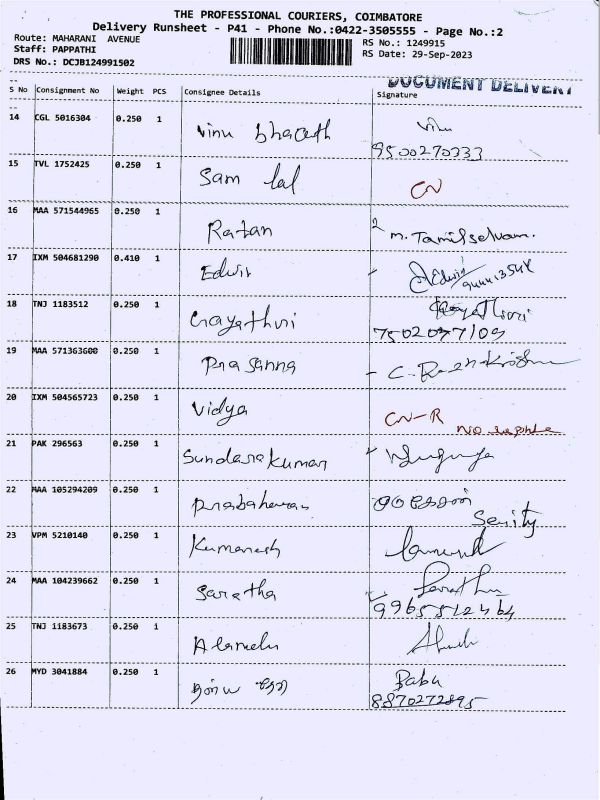 THE PROFESSIONAL COURIERS, COIMBATORE
Delivery Runsheet - P41 - Phone No.:0422-3505555 - Page No.:2
Route: MAHARANI AVENUE RS No.: 1249915
Staff: PAPPATHI RS Date: 29-Sep-2023
DRS No.: DCJB124991502
DOCUMENT DELIVERY
S No Consignment No Weight PCS Consignee Details Signature
14 CGL 5016304 0.250 1 Vinu bharath Vinu
9500270333
15 TVL 1752425 0.250 1 Sam lal CN
16 MAA 571544965 0.250 1 Ratan m. Tamilselvam.
17 IXM 504681290 0.410 1 Edwin Edwin
18 TNJ 1183512 0.250 1 Gayathiri Gayathiri
19 MAA 571363600 0.250 1 Prasanna
20 IXM 504565723 0.250 1 Vidya CN-R
21 PAK 296563 0.250 1 Sundarakumar
22 MAA 105294209 0.250 1 Prabaharan
23 VPM 5210140 0.250 1 Kumaresh
24 MAA 104239662 0.250 1 Saratha
25 TNJ 1183673 0.250 1 Alamelu
26 MYD 3041884 0.250 1 Babu
8870272895